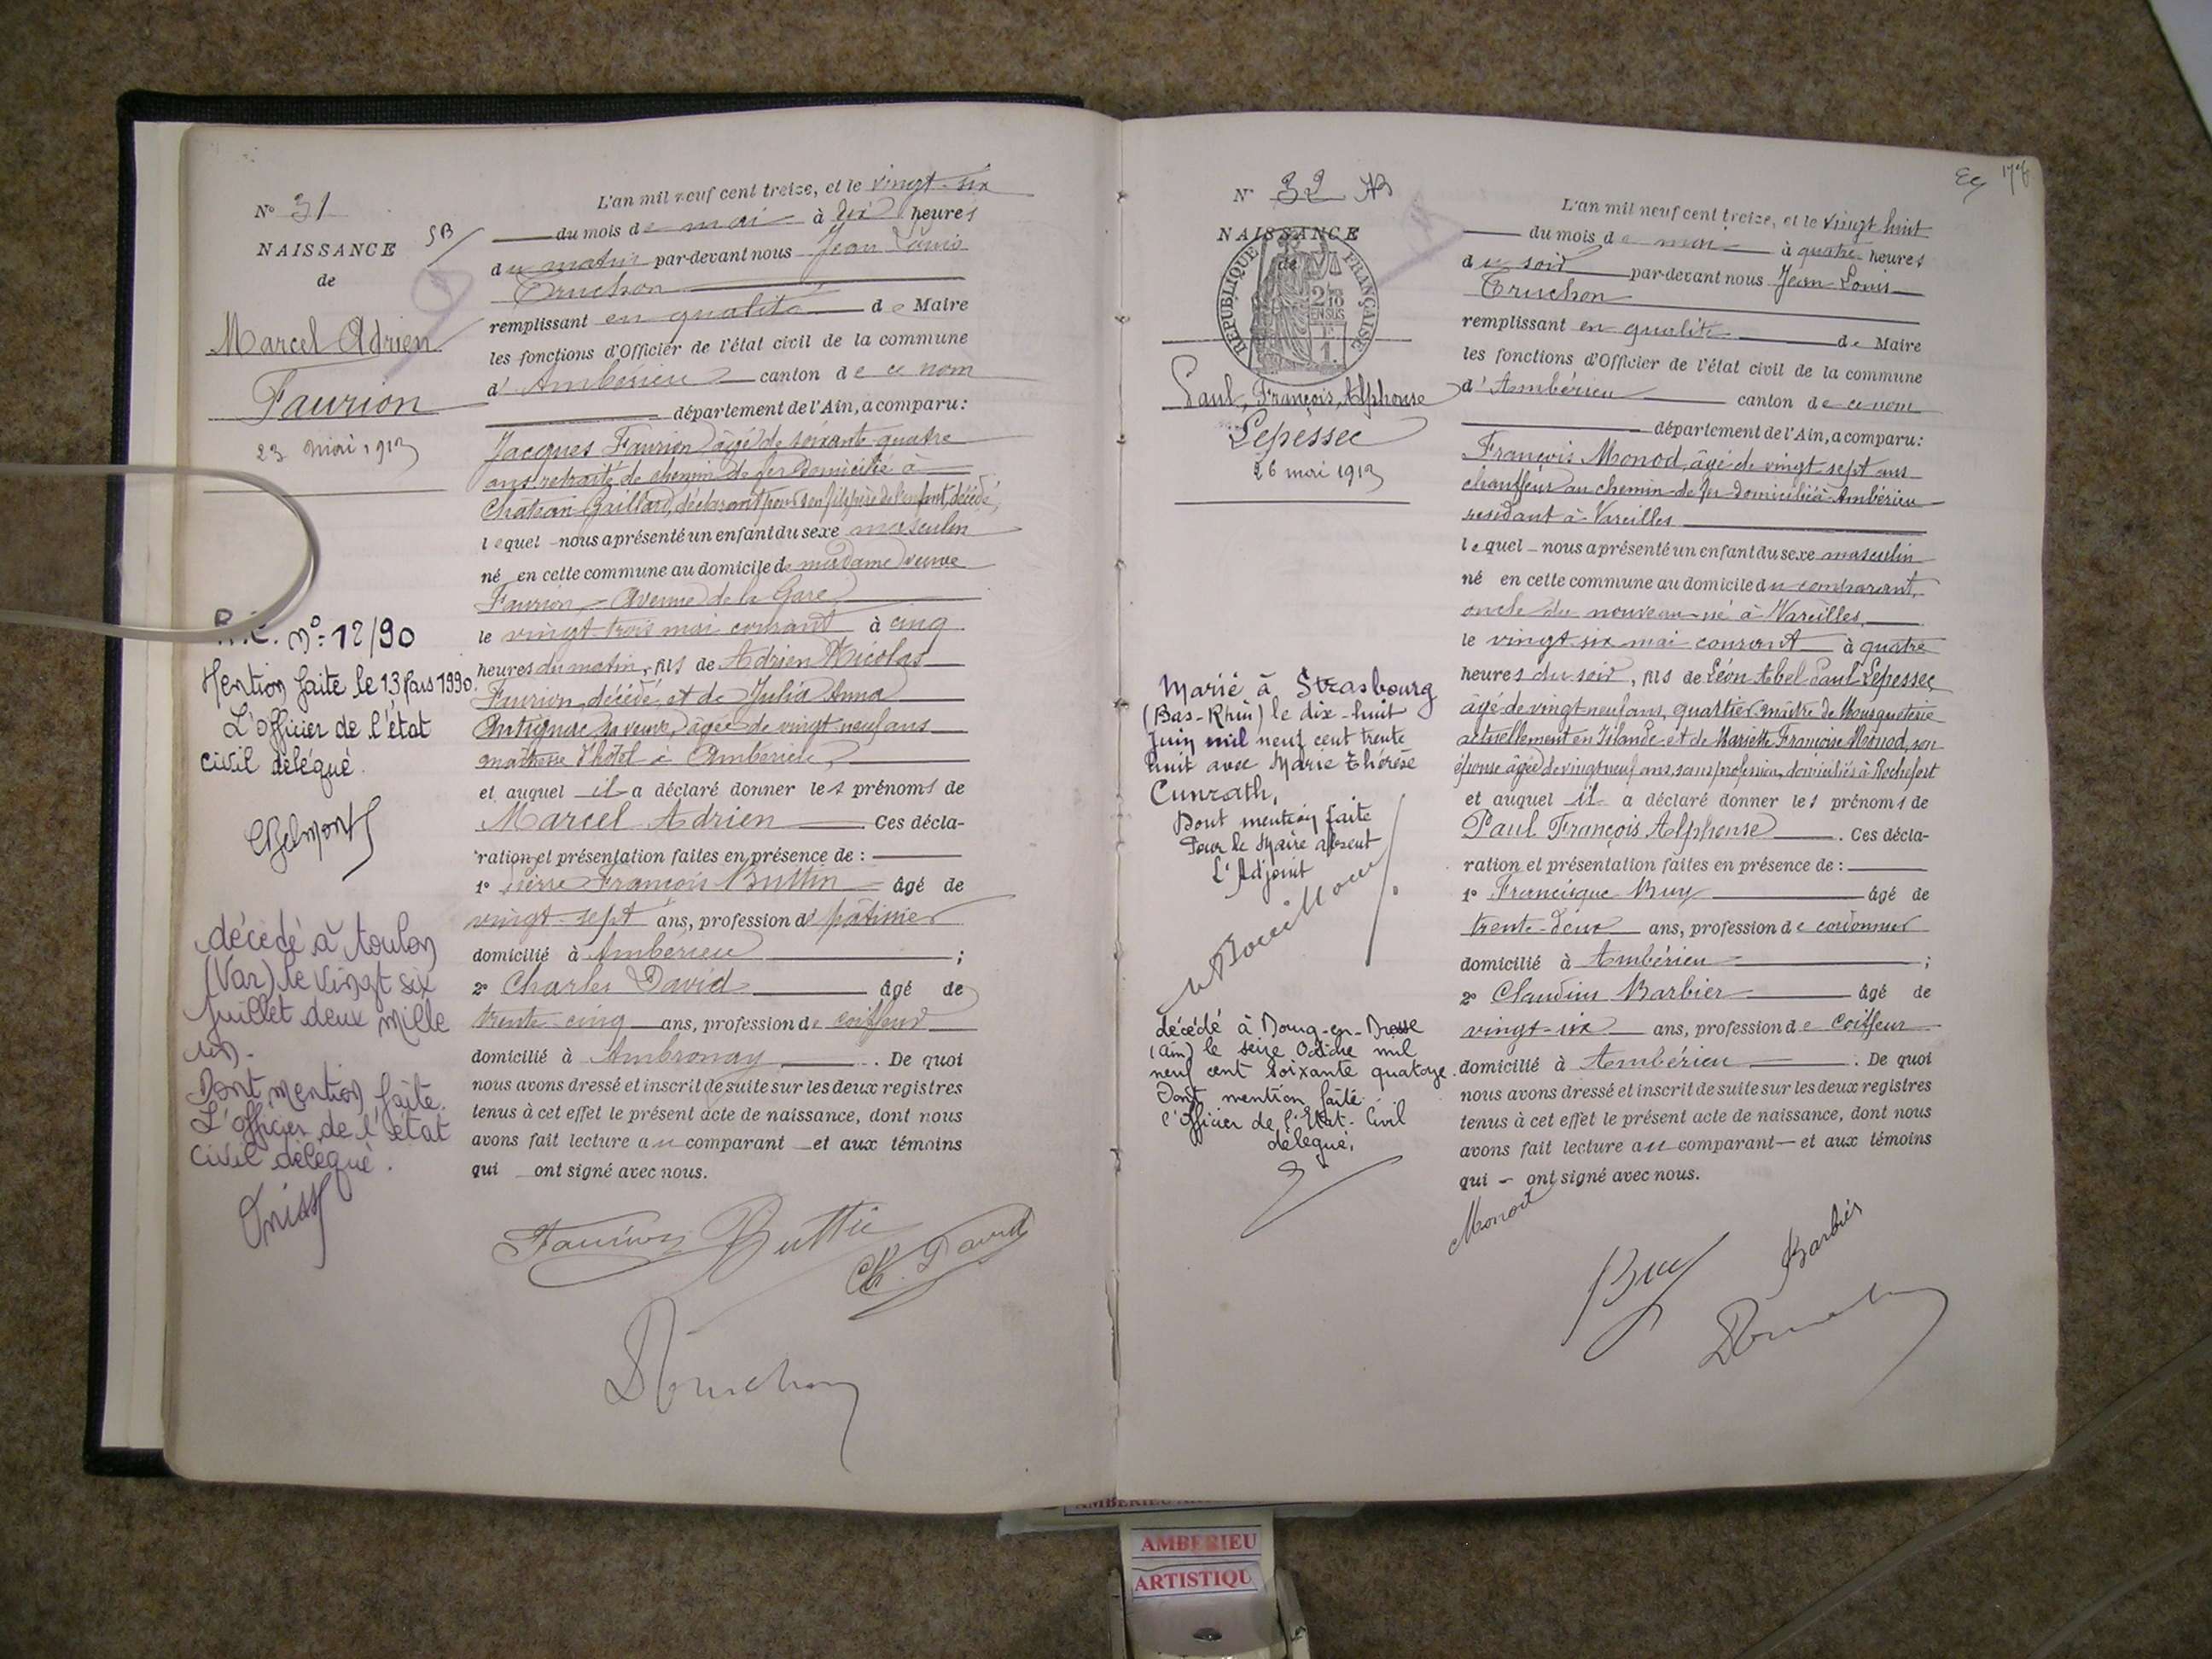 N° 31
NAISSANCE
de
Marcel Adrien
Faurion
23 mai 1913
R.C. N°: 12/90
Mention faite le 13 Mars 1990.
L'officier de l'état
civil délégué.
décédé à Toulon
(Var) le vingt six
juillet deux mille
un.
Dont mention faite.
L'officier de l'état
civil délégué.
SB
L'an mil neuf cent treize, et le vingt-six
du mois de mai à dix heures
du matin par-devant nous Jean Louis
Truchon
remplissant en qualité de Maire
les fonctions d'Officier de l'état civil de la commune
d' Ambérieu canton de ce nom
département de l'Ain, a comparu:
Jacques Faurion âgé de soixante quatre
ans retraité de chemin de fer domicilié à
Château-Gaillard, déclarant pour son fils père de l'enfant, décédé,
lequel nous a présenté un enfant du sexe masculin
né en cette commune au domicile de madame veuve
Faurion - Avenue de la Gare
le vingt-trois mai courant à cinq
heures du matin, fils de Adrien Nicolas
Faurion, décédé et de Julia Anna
sa veuve, âgée de vingt neuf ans
maîtresse d'hôtel à Ambérieu,
et auquel il a déclaré donner les prénoms de
Marcel Adrien Ces décla-
ration et présentation faites en présence de :
1° Pierre François Buttin âgé de
vingt-sept ans, profession de pâtissier
domicilié à Ambérieu ;
2° Charles David âgé de
trente-cinq ans, profession de coiffeur
domicilié à Ambronay . De quoi
nous avons dressé et inscrit de suite sur les deux registres
tenus à cet effet le présent acte de naissance, dont nous
avons fait lecture au comparant et aux témoins
qui ont signé avec nous.
Faurion Buttin
Ch. David
Truchon
N° 32
NAISSANCE
de
RÉPUBLIQUE FRANÇAISE
EN SUS
Paul, François, Alphonse
Lepessec
26 mai 1913
Marié à Strasbourg
(Bas-Rhin) le dix-huit
Juin mil neuf cent trente
huit avec Marie Thérèse
Cunrath,
Dont mention faite
Pour le Maire absent
L'Adjoint
décédé à Bourg-en-Bresse
(Ain) le seize Octobre mil
neuf cent soixante quatorze.
Dont mention faite
l'Officier de l'Etat-Civil
délégué,
L'an mil neuf cent treize, et le vingt huit
du mois de mai à quatre heures
du soir par-devant nous Jean Louis
Truchon
remplissant en qualité de Maire
les fonctions d'Officier de l'état civil de la commune
d'Ambérieu canton de ce nom
département de l'Ain, a comparu:
François Monod, âgé de vingt sept ans
chauffeur au chemin de fer domicilié à Ambérieu
résidant à Vareilles
lequel nous a présenté un enfant du sexe masculin
né en cette commune au domicile du comparant,
oncle du nouveau-né à Vareilles,
le vingt-six mai courant à quatre
heures du soir, fils de Léon Abel Paul Lepessec
âgé de vingt neuf ans, quartier-maître de Mousqueterie
actuellement en Islande et de Mariette Françoise Monod, son
épouse âgée de vingt neuf ans, sans profession, domiciliés à Rochefort
et auquel il a déclaré donner les prénoms de
Paul François Alphonse . Ces décla-
ration et présentation faites en présence de :
1° Francisque Buy âgé de
trente-deux ans, profession de cordonnier
domicilié à Ambérieu ;
2° Claudius Barbier âgé de
vingt-six ans, profession de Coiffeur
domicilié à Ambérieu . De quoi
nous avons dressé et inscrit de suite sur les deux registres
tenus à cet effet le présent acte de naissance, dont nous
avons fait lecture au comparant et aux témoins
qui ont signé avec nous.
Monod
Buy
Barbier
AMBERIEU
ARTISTIQU